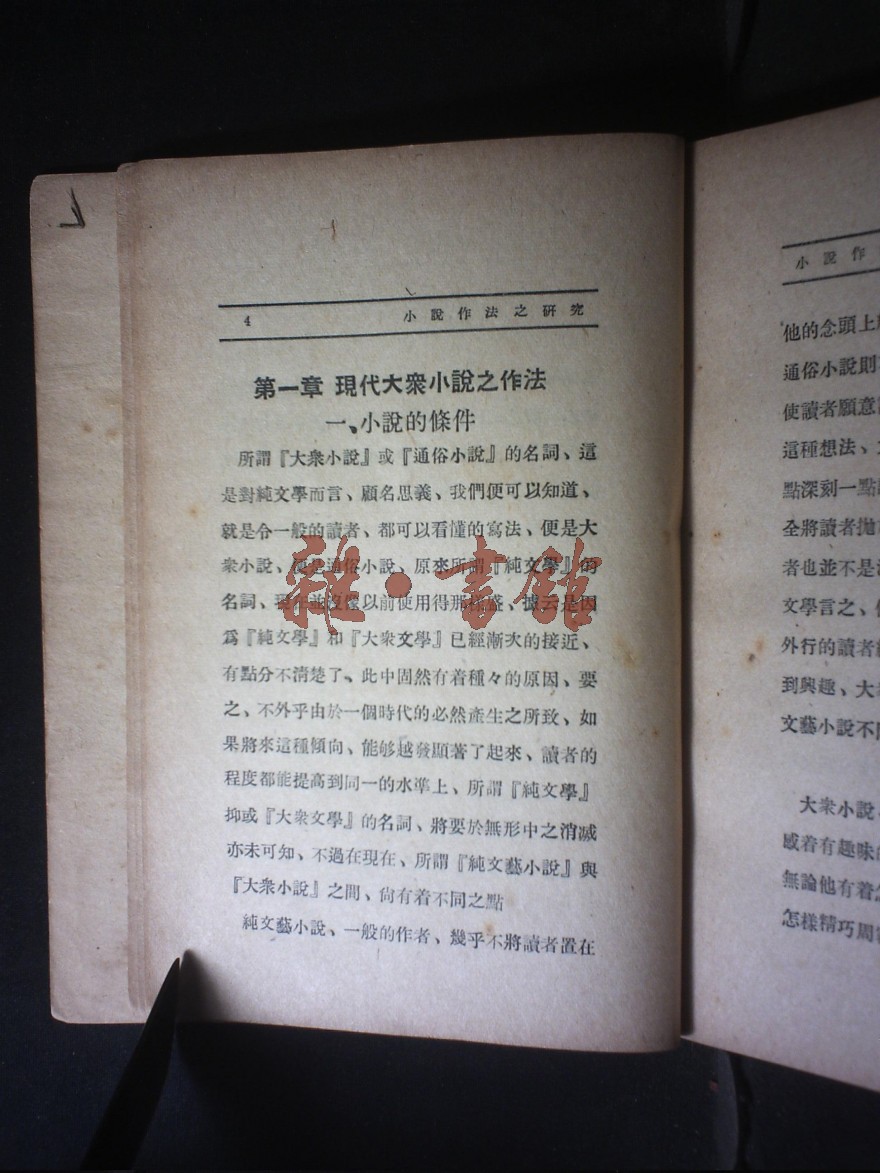 4 小說作法之研究
第一章 現代大衆小說之作法
一、小說的條件
所謂『大衆小說』或『通俗小說』的名詞、這
是對純文學而言、顧名思義、我們便可以知道、
就是令一般的讀者、都可以看懂的寫法、便是大
衆小說、便是通俗小說、原來所謂『純文學』的
名詞、現在並沒像以前使用得那樣盛、據云是因
爲『純文學』和『大衆文學』已經漸次的接近、
有點分不清楚了、此中固然有着種々的原因、要
之、不外乎由於一個時代的必然產生之所致、如
果將來這種傾向、能够越發顯著了起來、讀者的
程度都能提高到同一的水準上、所謂『純文學』
抑或『大衆文學』的名詞、將要於無形中之消滅
亦未可知、不過在現在、所謂『純文藝小說』與
『大衆小說』之間、尙有着不同之點
純文藝小說、一般的作者、幾乎不將讀者置在
小說作
他的念頭上
通俗小說則
使讀者願意
這種想法、
點深刻一點
全將讀者拋
者也並不是
文學言之、
外行的讀者
到興趣、大
文藝小說不同
大衆小說、
感着有趣味的
無論他有着怎
怎樣精巧周
雜·書館